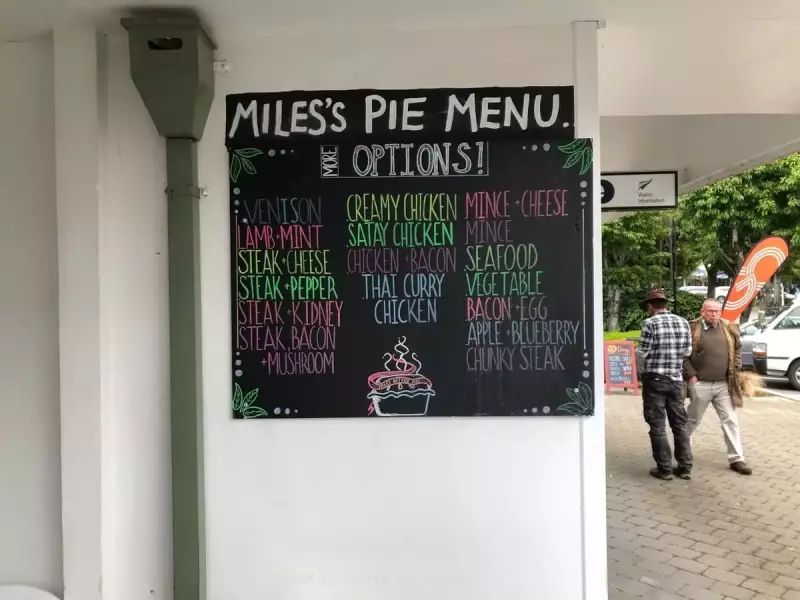 MILES'S PIE MENU.
MORE OPTIONS!
VENISON
LAMB+MINT
STEAK+CHEESE
STEAK+PEPPER
STEAK+KIDNEY
STEAK, BACON
+MUSHROOM
CREAMY CHICKEN
SATAY CHICKEN
CHICKEN+BACON
THAI CURRY
CHICKEN
MINCE+CHEESE
MINCE
SEAFOOD
VEGETABLE
BACON+EGG
APPLE+BLUEBERRY
CHUNKY STEAK
Visitor
Information